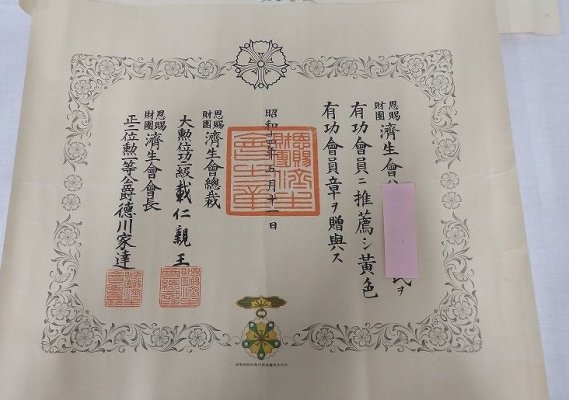 恩賜財團 濟生會
氏ヲ
有功會員ニ推薦シ黃色
有功會員章ヲ贈與ス
昭和十四年五月十一日
恩賜財團 濟生會總裁
大勲位功二級載仁親王
恩賜財團 濟生會會長
正二位勲一等公爵德川家達